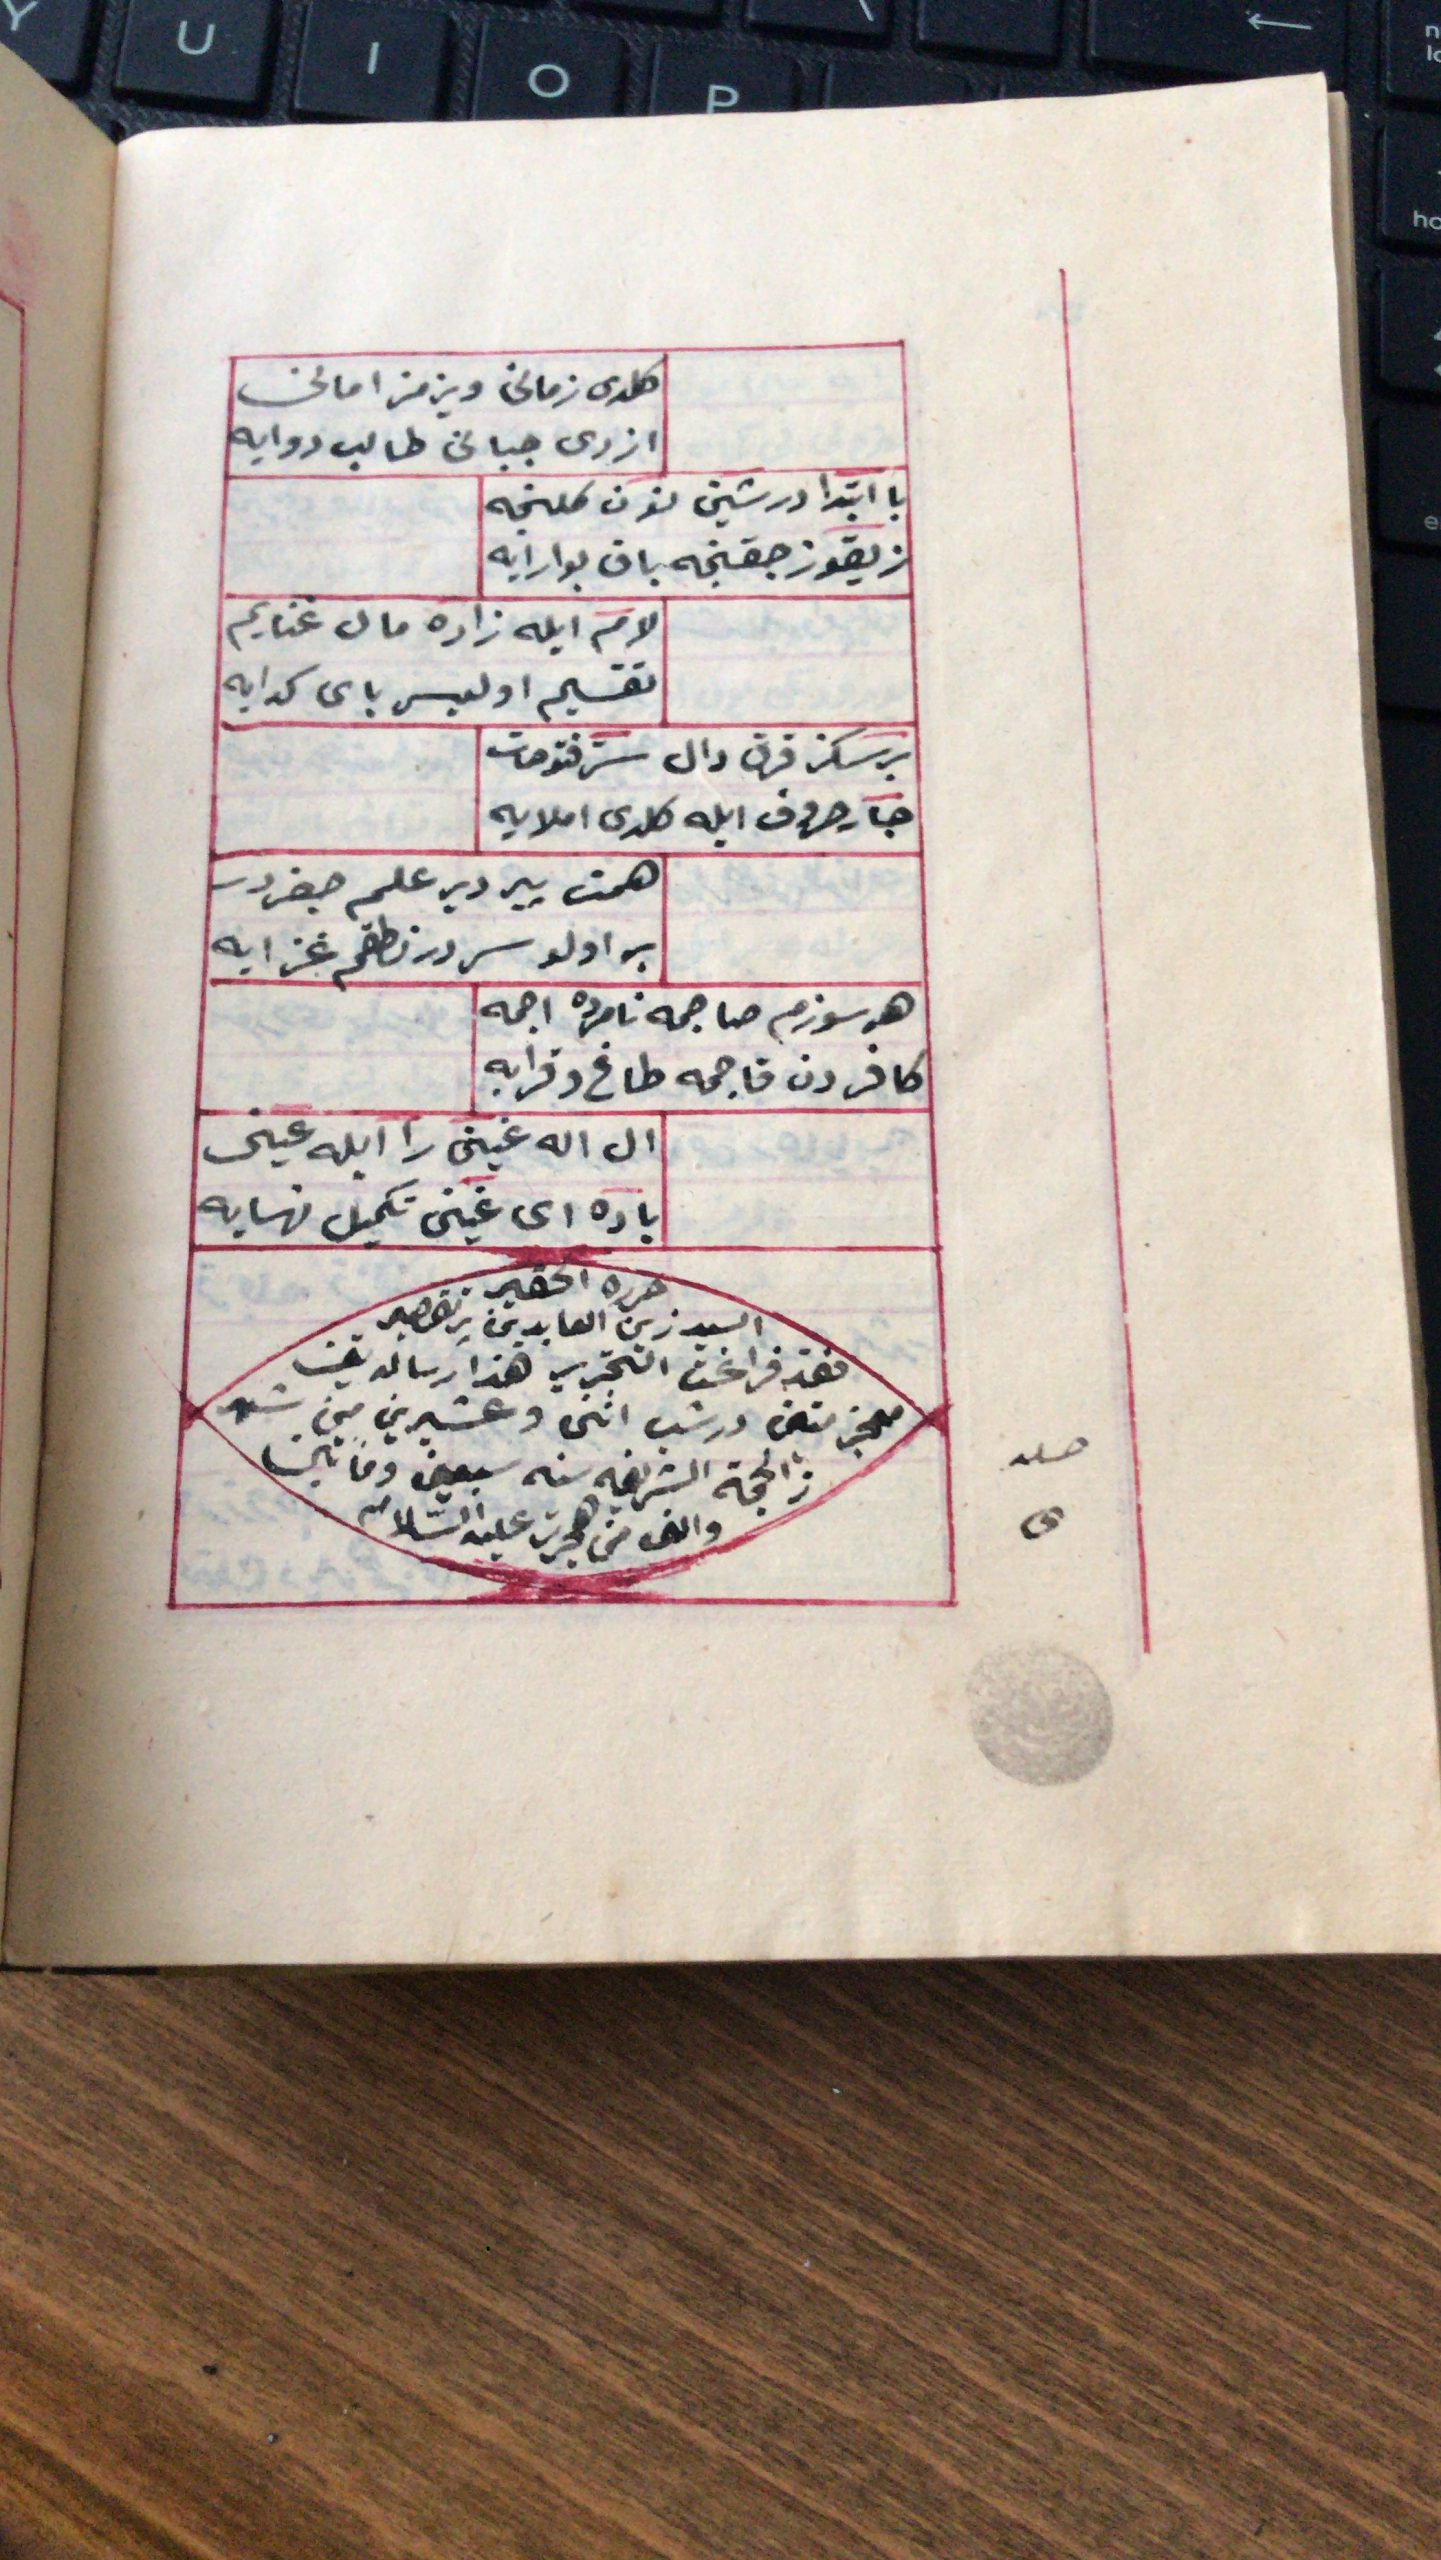 كلدى زمانى ويزمز امانى
از دى جبانى طالب دوايه
با ابتدا در شين نون كلنجه
زيقوز جقنجه باق بوارايه
لام ايله زاده مال غنايم
تقسيم اوليسر باى كدايه
بر سكز فرق دال ستر فتوحات
جار حروف ايله كلدى املايه
همت پير دير علم جفردر
بر اولو سر در نطقم غزايه
هر سوزم صاجمه نامرده اجمه
كافردن قاجمه طاغ وقرايه
ال اله غينى را ايله عينى
ياره اى غينى تكميل نهايه
حرره الحقير
السيد زين العابدين پر تقصير
فقد فراغت التحرير هذا رساله
در شب اثنى وعشرين من شهر
ذالحجة الشريفه سنه سبعين ومأتين
والف من هجرت عليه السلام
U
I
O
P